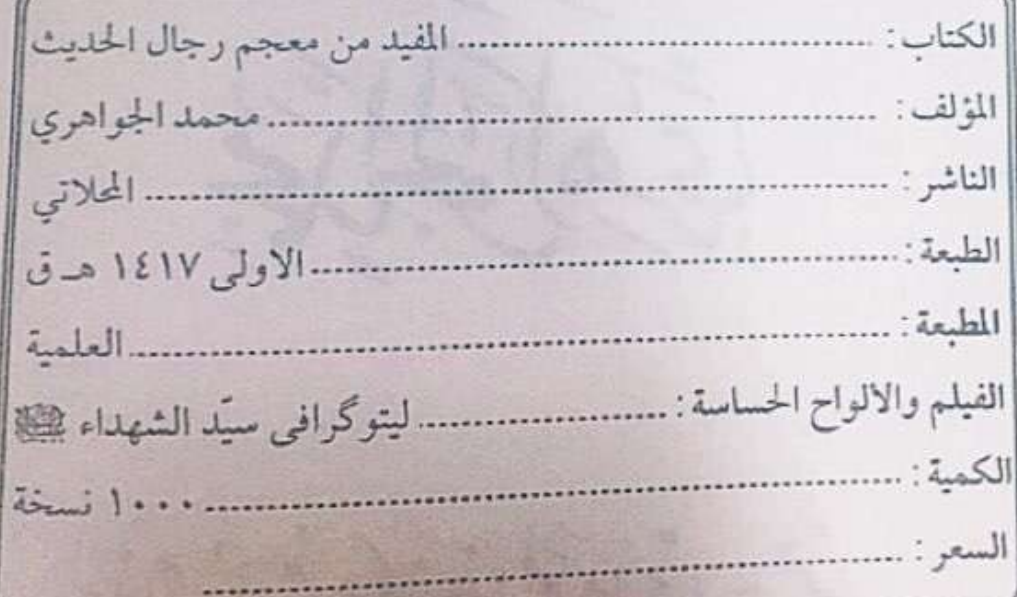 الكتاب : ........................................ المفيد من معجم رجال الحديث
المؤلف : ........................................ محمد الجواهري
الناشر : ........................................ المحلاتي
الطبعة : ........................................ الاولى ١٤١٧ هـ ق
المطبعة : ........................................ العلمية
الفيلم والالواح الحساسة : .................... ليتوگرافی سيّد الشهداء
الكمية : ........................................ ١٠٠٠ نسخة
السعر : ........................................